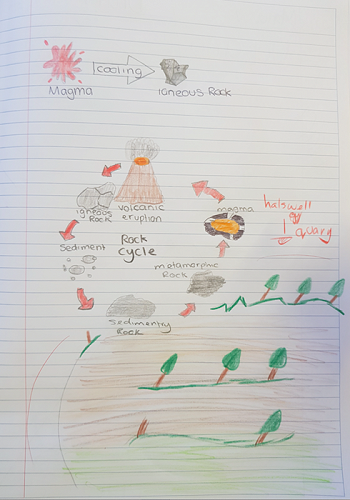 cooling
Magma
igneous Rock
volcanic
eruption
igneous
Rock
magma
halswell
quary
Sediment
Rock
cycle
metamorphic
Rock
Sedimentry
Rock